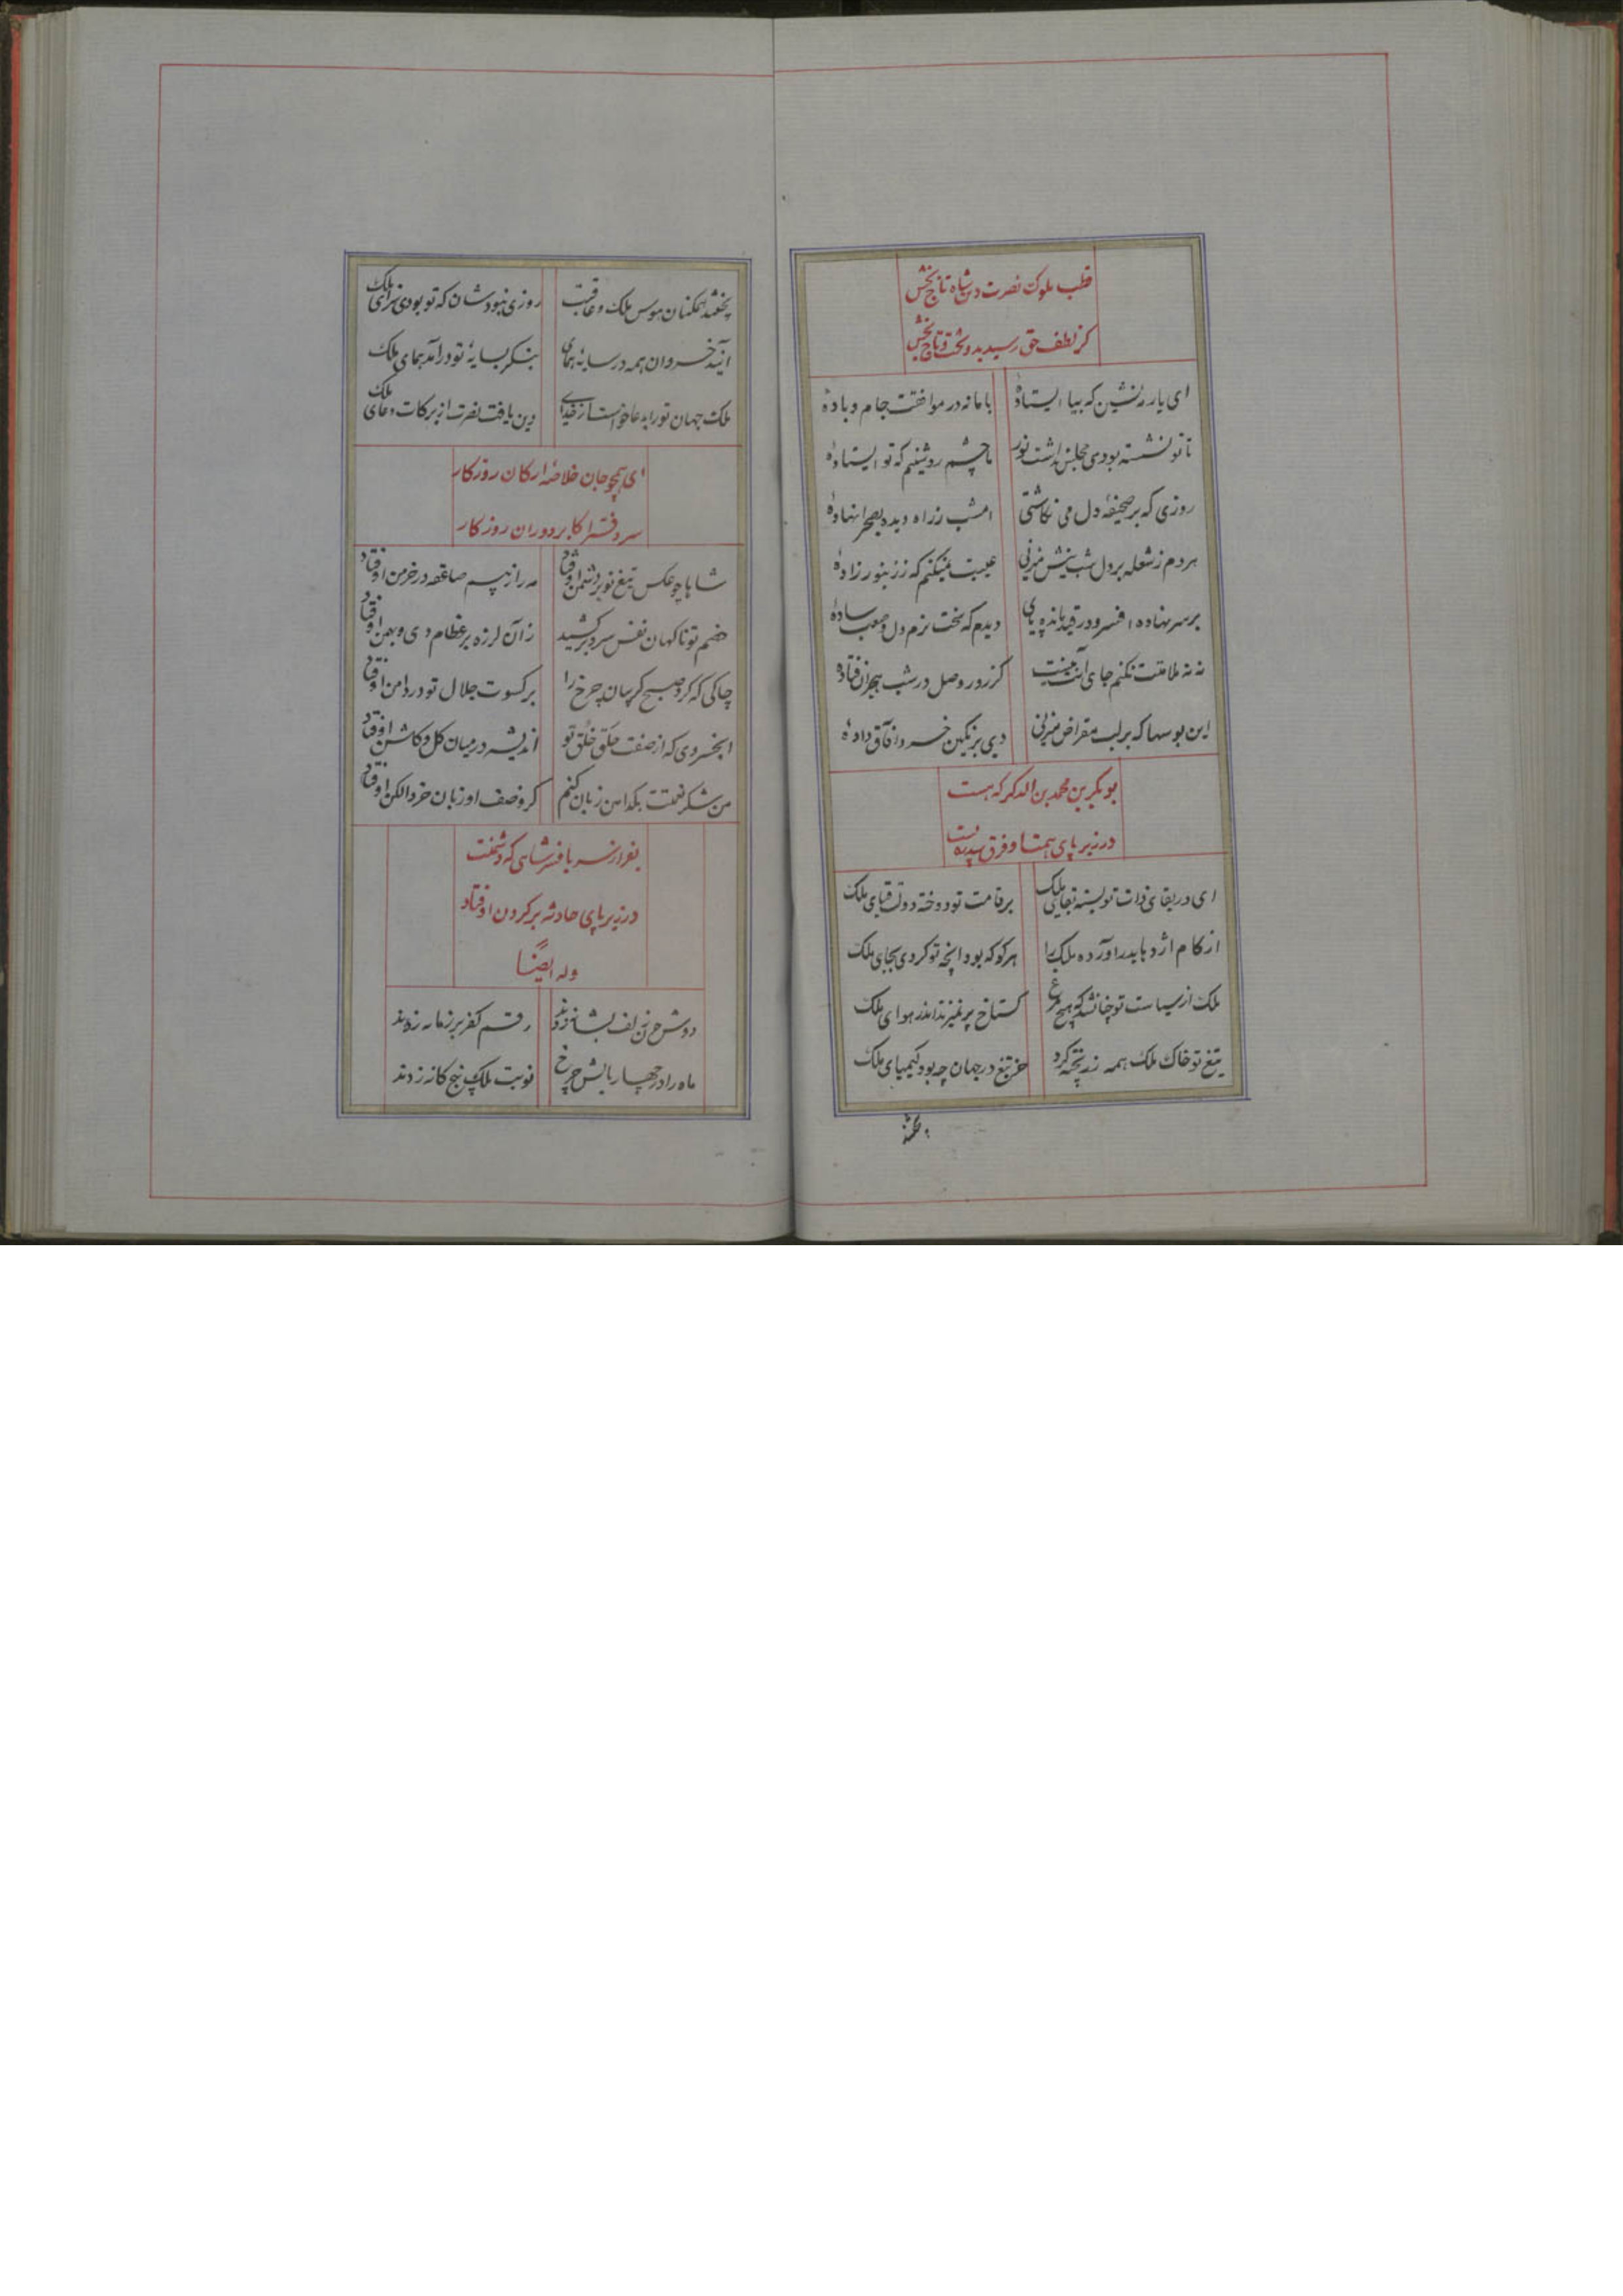 قطب ملوک نصرت دین شاه تاج بخش
کز لطف حق رسید بدو تخت و تاج و بخش
ای یار نه نشین که بپا ایستاده با ما نه در موافقت جام و باده
تا تو نشسته بودی مجلس نداشت نور ما چشم روشنیم که تو ایستاده
روزی که بر صحیفه دل می نکاشتی امشب ز راه دیده بصحرا نهاده
هر دم ز شعله بر دل شب نیش میزنی عیبت نمیکنم که ز زنبور زاده
بر سر نهاده افسر و در قید مانده پای دیدم که سخت نرم دل و صعب ساده
نه نه ملامتت نکنم جای آنت نیست کز روز وصل در شب هجران فتاده
این بوسها که بر لب مقراض میزنی دی بر نکین خسرو آفاق داده
بوبکر بن محمد بن الدکز که هست
در زیر پای همتا و فرق سپهر پست
ای در بقای ذات تو بسته بقای ملک بر قامت تو دوخته دولت قبای ملک
از کام اژدها بدر آورده ملک را هر کو که بود انچه تو کردی بجای ملک
ملک از سیاست تو چنان شد که هیچ مرغ کستاخ پر نمیزند اندر هوای ملک
تیغ تو خاک ملک همه زر پخته کرد جز تیغ در جهان چه بود کیمیای ملک
پختند
پختند همکنان هوس ملک و عاقبت روزی نبودشان که تو بودی سزای ملک
آیند خسروان همه در سایه همای بنکر بسایه تو درآمد همای ملک
ملک جهان تو را بدعا خواست از خدای دین یافت نصرت از برکات دعای ملک
ای همچو جان خلاصه ارکان روزکار
سر دفتر اکابر دوران روزکار
شاها چو عکس تیغ تو بر دشمن اوفتاد مه را ز بیم صاعقه در خرمن اوفتاد
خصم تو ناکهان نفس سرد برکشید زان لرزه بر عظام دی و بهمن اوفتاد
چاکی که کرد صبح کریبان چرخ را بر کسوت جلال تو در دامن اوفتاد
ای خسروی که از صفت خَلق خُلق تو اندیشه در میان کل و کلشن اوفتاد
من شکر نعمتت بکدامین زبان کنم کز وصف او زبان خرد الکن اوفتاد
بفراز سر بافسر شاهی که دشمنت
در زیر پای حادثه بر کردن اوفتاد
وله ایضًا
دوش چون زلف بشانه زدند رقم کفر بر زمانه زدند
ماه را در چهار بالش چرخ نوبت ملک پنج کانه زدند